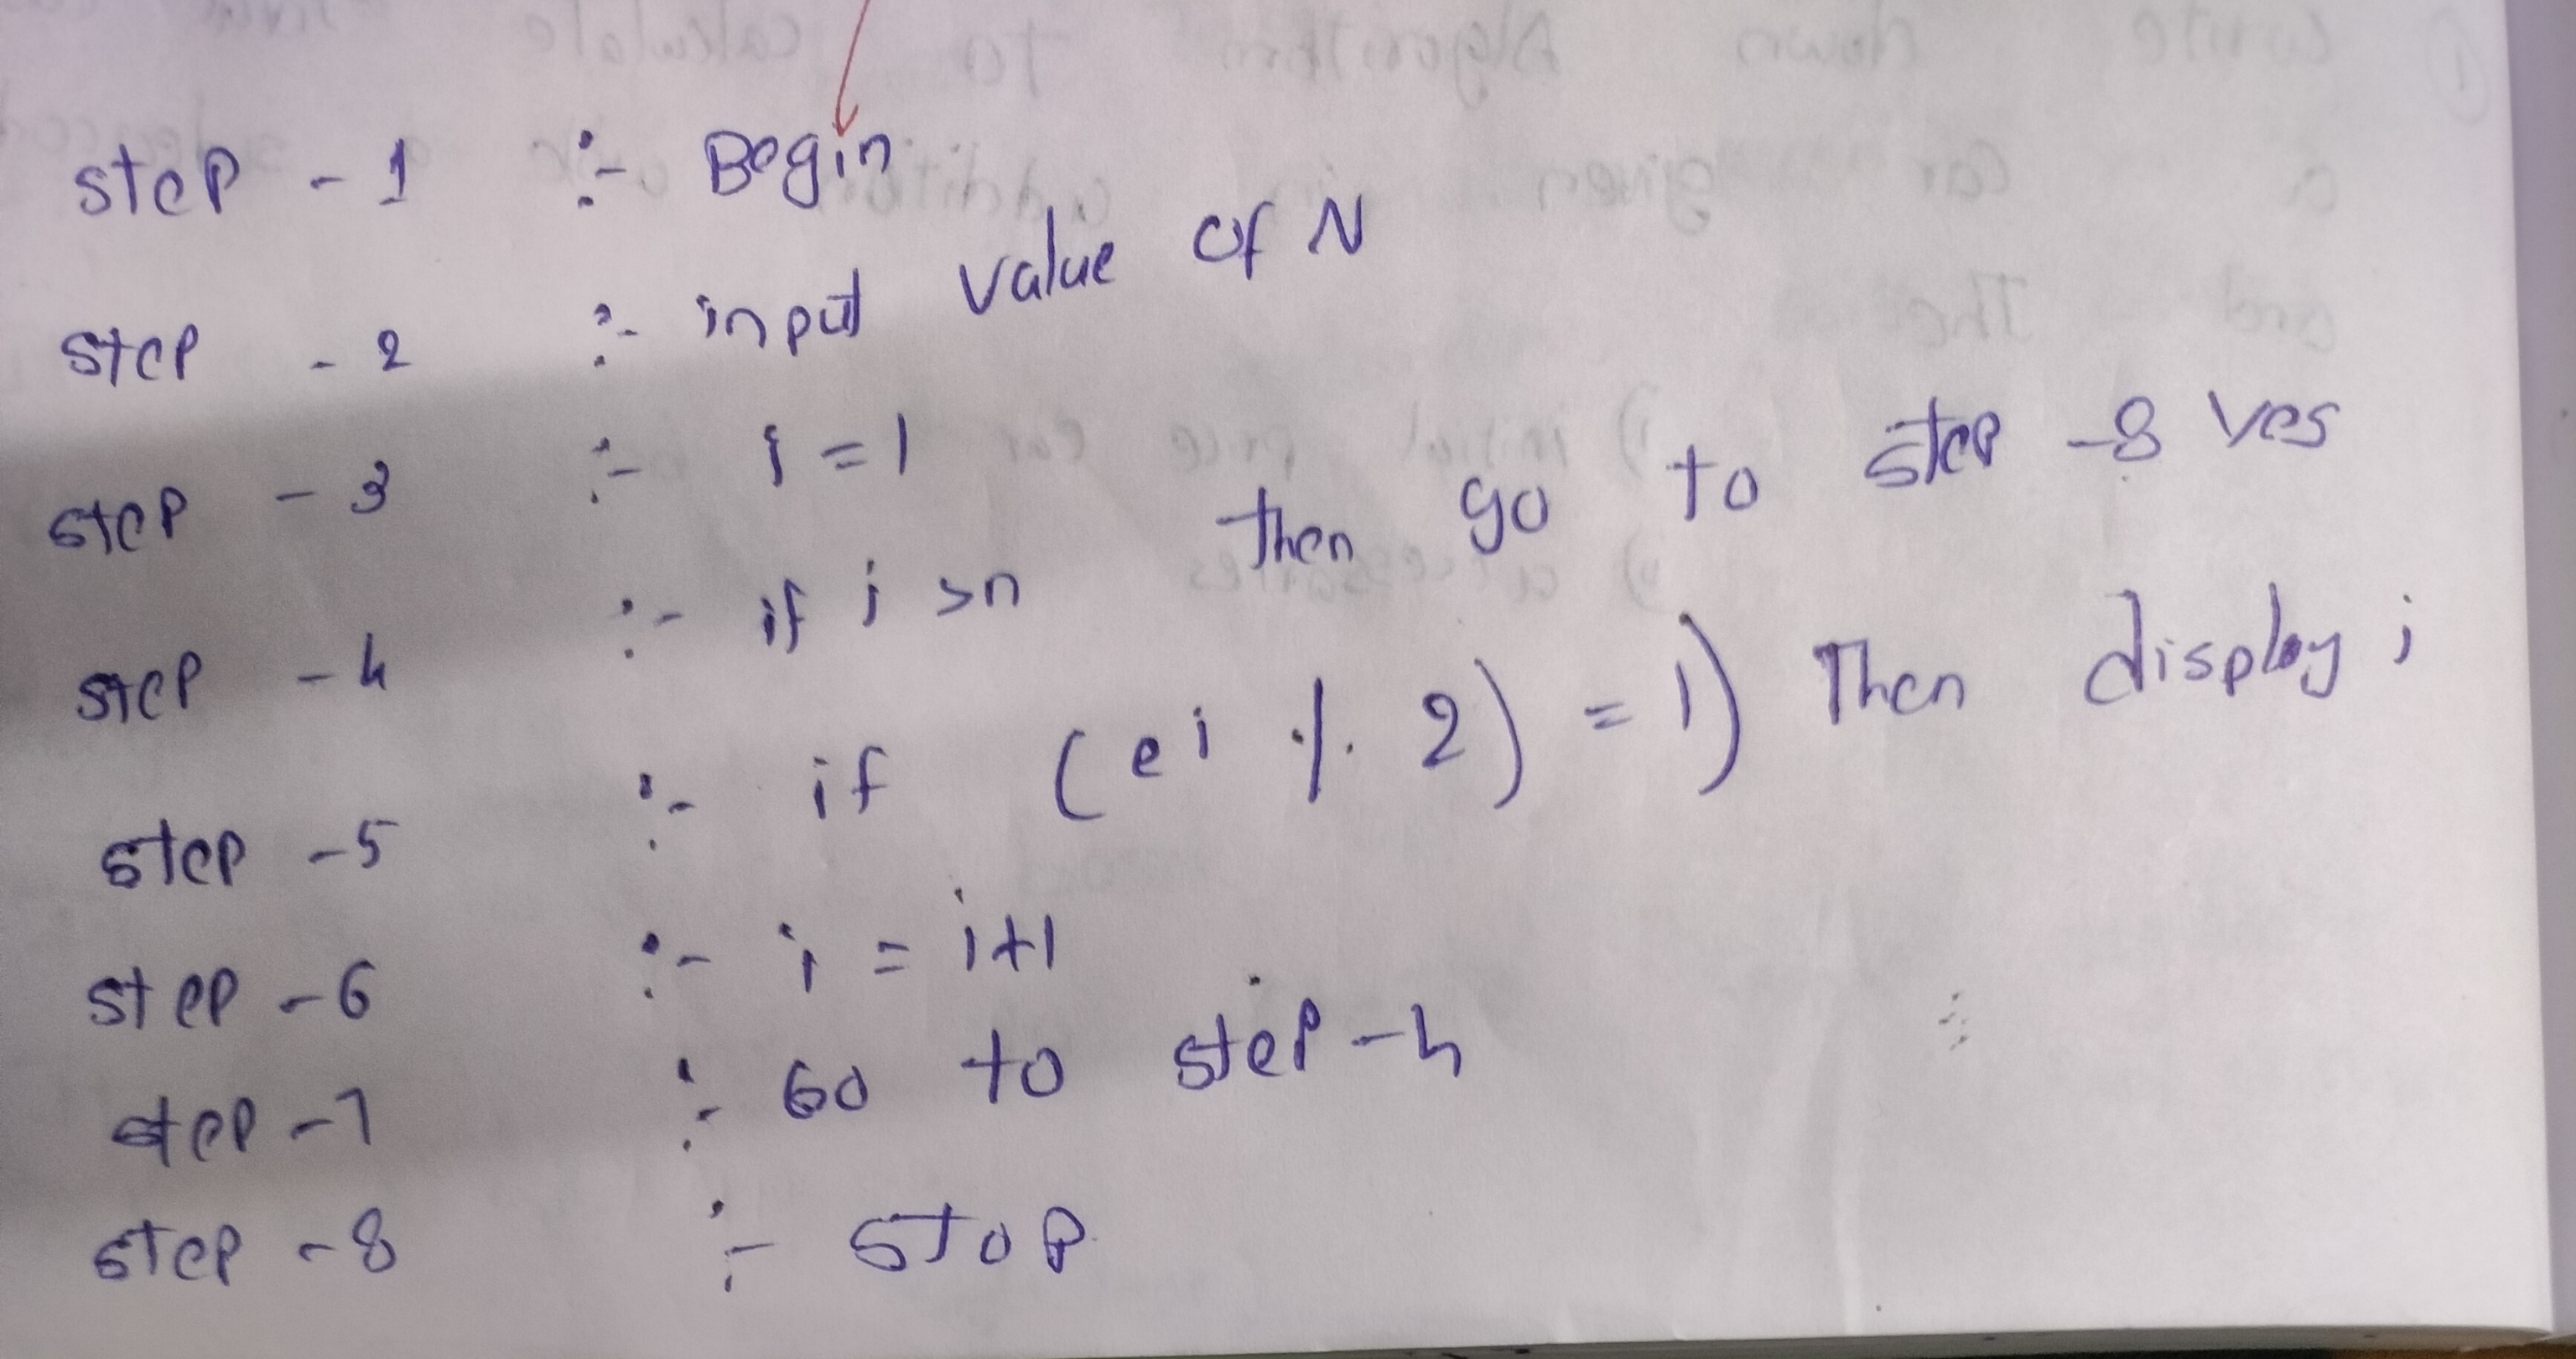 step - 1 :- Begin
step - 2 :- input value of N
step - 3 :- i = 1
step - 4 :- if i >n then go to step -8 yes
step - 5 :- if (ei % 2) = 1) Then display i
step - 6 :- i = i+1
step - 7 :- Go to step - 4
step - 8 :- STOP